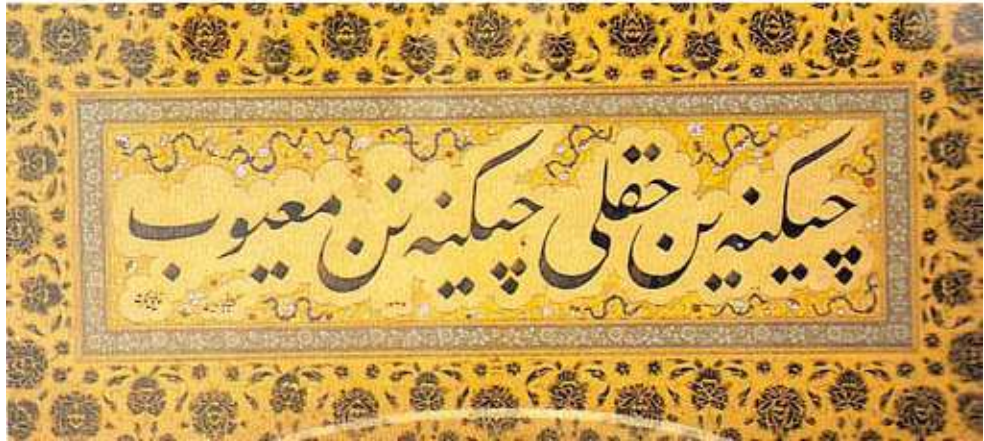 چیکنه ین حقلی چیکنه نن معیوب